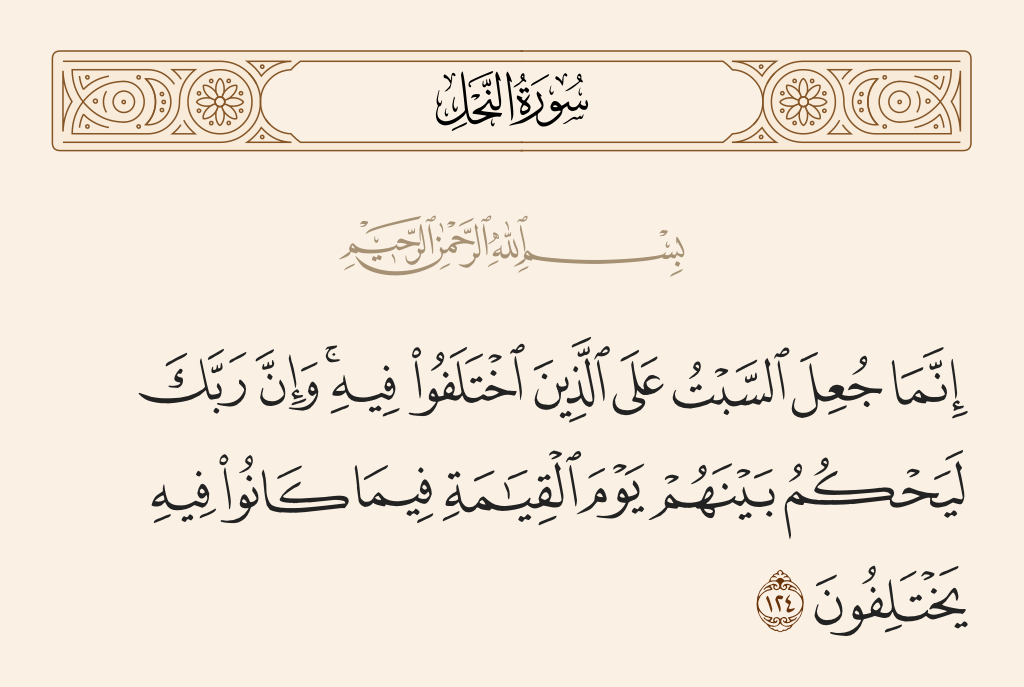 سُورَةُ النَّحْلِ
بِسْمِ ٱللَّهِ ٱلرَّحْمَٰنِ ٱلرَّحِيمِ
إِنَّمَا جُعِلَ ٱلسَّبْتُ عَلَى ٱلَّذِينَ ٱخْتَلَفُوا۟ فِيهِ ۚ وَإِنَّ رَبَّكَ
لَيَحْكُمُ بَيْنَهُمْ يَوْمَ ٱلْقِيَـٰمَةِ فِيمَا كَانُوا۟ فِيهِ
يَخْتَلِفُونَ ١٢٤